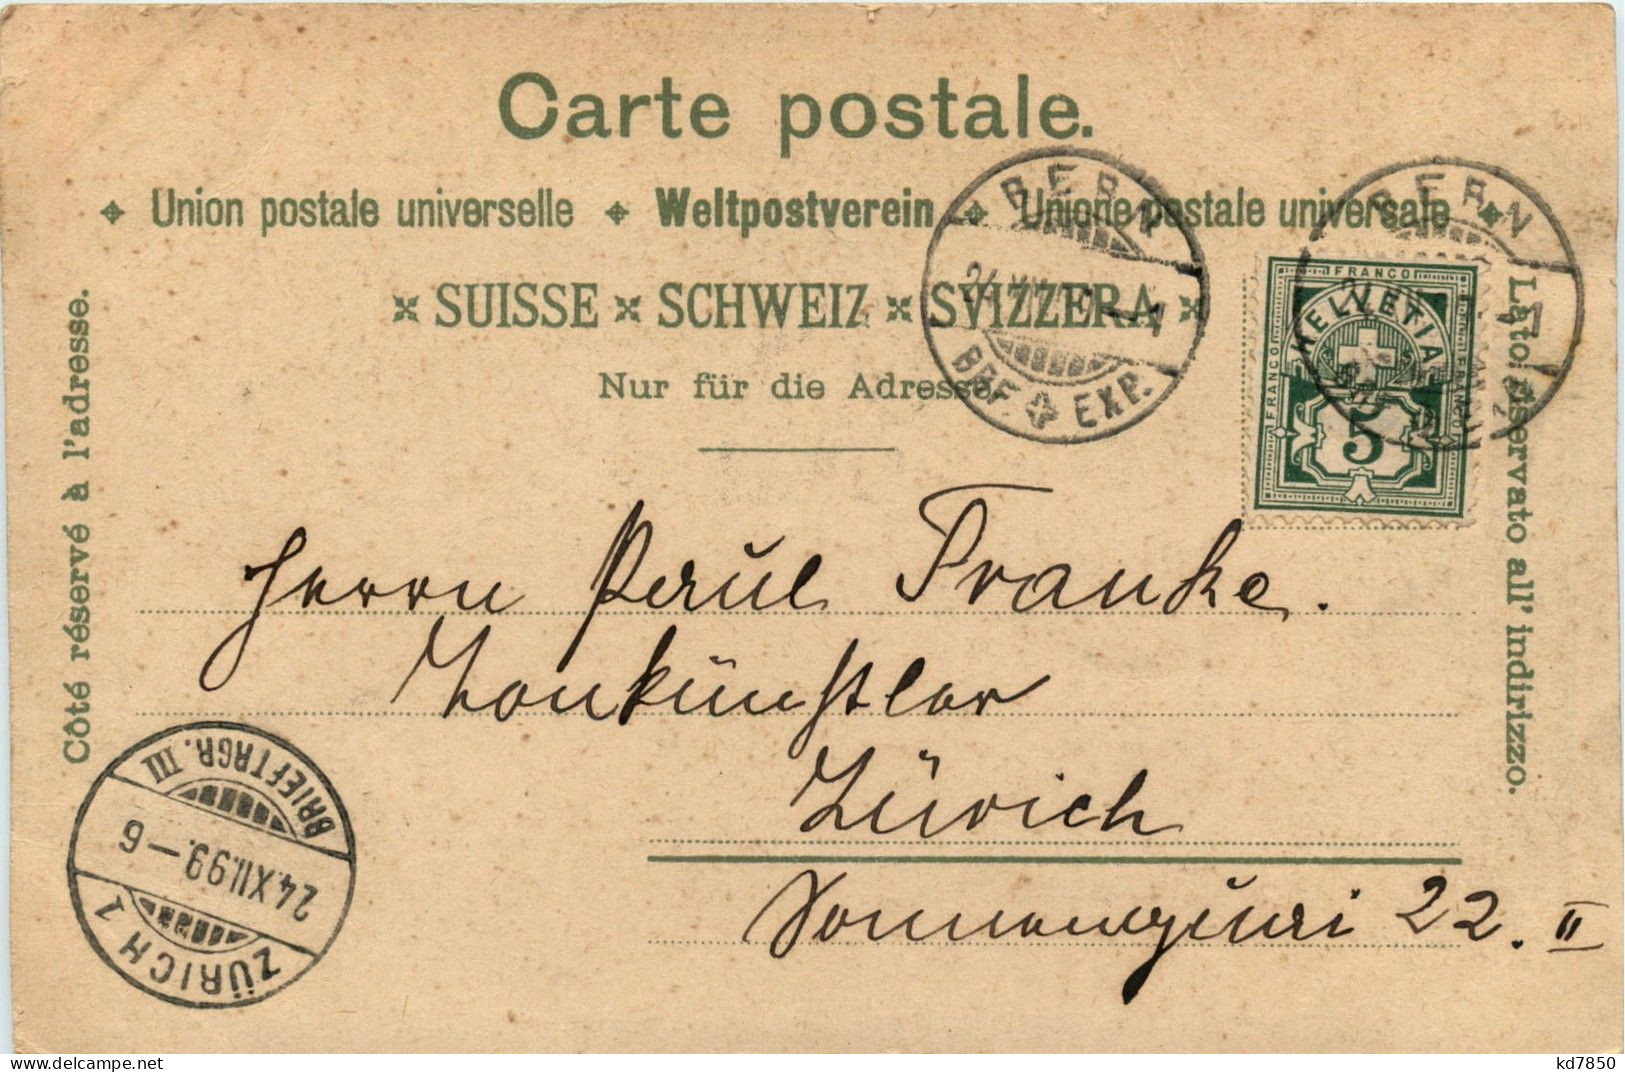 Carte postale.
Union postale universelle Weltpostverein Unione postale universale
SUISSE SCHWEIZ SVIZZERA
Nur für die Adresse.
Côté réservé à l'adresse.
Lato riservato all' indirizzo.
BERN
24.XII.
BRF. EXP.
BERN
FRANCO
HELVETIA
FRANCO
FRANCO
5
Herrn Paul Franke.
Tonkünstler
Zürich
22. II
BRIEFTRGR. III
24.XII.99.-6
ZÜRICH 1
www.delcampe.net
kd7850